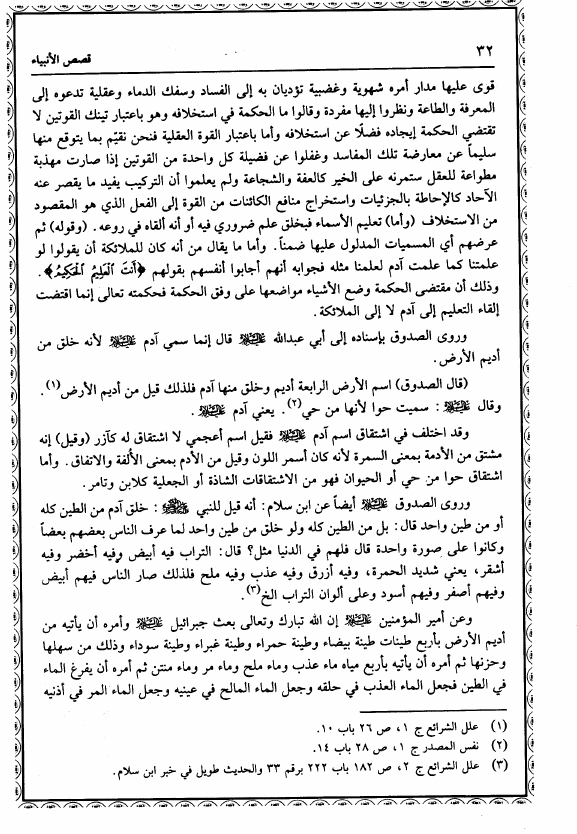 ٣٢
قصص الأنبياء
قوى عليها مدار أمره شهوية وغضبية تؤديان به إلى الفساد وسفك الدماء وعقلية تدعوه إلى
المعرفة والطاعة ونظروا إليها مفردة وقالوا ما الحكمة في استخلافه وهو باعتبار تينك القوتين لا
تقتضي الحكمة إيجاده فضلًا عن استخلافه وأما باعتبار القوة العقلية فنحن نقيّم بما يتوقع منها
سليماً عن معارضة تلك المفاسد وغفلوا عن فضيلة كل واحدة من القوتين إذا صارت مهذبة
مطواعة للعقل ستمرنه على الخير كالعفة والشجاعة ولم يعلموا أن التركيب يفيد ما يقصر عنه
الآحاد كالإحاطة بالجزئيات واستخراج منافع الكائنات من القوة إلى الفعل الذي هو المقصود
من الاستخلاف (وأما) تعليم الأسماء فبخلق علم ضروري فيه أو أنه ألقاه في روعه. (وقوله) ثم
عرضهم أي المسميات المدلول عليها ضمناً. وأما ما يقال من أنه كان للملائكة أن يقولوا لو
علمتنا كما علمت آدم لعلمنا مثله فجوابه أنهم أجابوا أنفسهم بقولهم ﴿أَنتَ الْعَلِيمُ الْحَكِيمُ﴾.
وذلك أن مقتضى الحكمة وضع الأشياء مواضعها على وفق الحكمة فحكمته تعالى إنما اقتضت
إلقاء التعليم إلى آدم لا إلى الملائكة.
وروى الصدوق بإسناده إلى أبي عبدالله عليه السلام قال إنما سمي آدم عليه السلام لأنه خلق من
أديم الأرض.
(قال الصدوق) اسم الأرض الرابعة أديم وخلق منها آدم فلذلك قيل من أديم الأرض(١).
وقال عليه السلام: سميت حوا لأنها من حي(٢). يعني آدم عليه السلام.
وقد اختلف في اشتقاق اسم آدم عليه السلام فقيل اسم أعجمي لا اشتقاق له كآزر (وقيل) إنه
مشتق من الأدمة بمعنى السمرة لأنه كان أسمر اللون وقيل من الأدم بمعنى الألفة والاتفاق. وأما
اشتقاق حوا من حي أو الحيوان فهو من الاشتقاقات الشاذة أو الجعلية كلابن وتامر.
وروى الصدوق عليه السلام أيضاً عن ابن سلام: أنه قيل للنبي صلى الله عليه وآله وسلم: خلق آدم من الطين كله
أو من طين واحد قال: بل من الطين كله ولو خلق من طين واحد لما عرف الناس بعضهم بعضاً
وكانوا على صورة واحدة قال فلهم في الدنيا مثل؟ قال: التراب فيه أبيض وفيه أخضر وفيه
أشقر، يعني شديد الحمرة، وفيه أزرق وفيه عذب وفيه ملح فلذلك صار الناس فيهم أبيض
وفيهم أصفر وفيهم أسود وعلى ألوان التراب الخ(٣).
وعن أمير المؤمنين عليه السلام إن الله تبارك وتعالى بعث جبرائيل عليه السلام وأمره أن يأتيه من
أديم الأرض بأربع طينات طينة بيضاء وطينة حمراء وطينة غبراء وطينة سوداء وذلك من سهلها
وحزنها ثم أمره أن يأتيه بأربع مياه ماء عذب وماء ملح وماء مر وماء منتن ثم أمره أن يفرغ الماء
في الطين فجعل الماء العذب في حلقه وجعل الماء المالح في عينيه وجعل الماء المر في أذنيه
(١) علل الشرائع ج ١، ص ٢٦ باب ١٠.
(٢) نفس المصدر ج ١، ص ٢٨ باب ١٤.
(٣) علل الشرائع ج ٢، ص ١٨٢ باب ٢٢٢ برقم ٣٣ والحديث طويل في خبر ابن سلام.